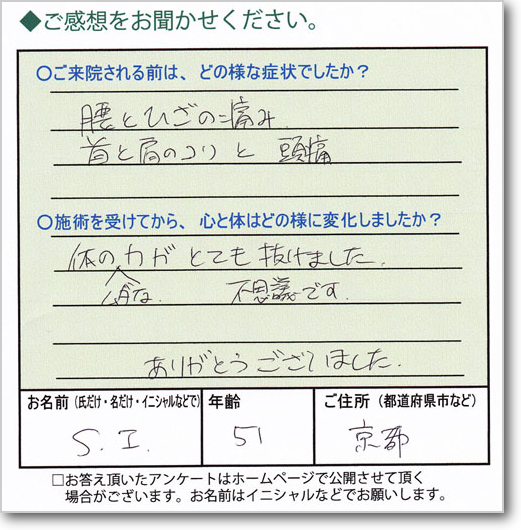 ◆ご感想をお聞かせください。
〇ご来院される前は、どの様な症状でしたか?
腰とひざの痛み
首と肩のコリと 頭痛
〇施術を受けてから、心と体はどの様に変化しましたか?
体の力が とても 抜けました.
不思議です.
ありがとうございました.
お名前(氏だけ・名だけ・イニシャルなどで)
年齢
ご住所(都道府県市など)
S. I.
51
京都
□お答え頂いたアンケートはホームページで公開させて頂く
場合がございます。お名前はイニシャルなどでお願いします。